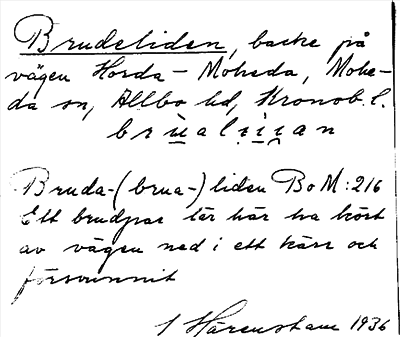 Brudeliden, backe på
vägen Horda - Moheda, Mohe-
da sn, Allbo hd, Kronob. l.
Bruda-(brua-) liden BoM: 216
Ett brudpar lär här ha kört
av vägen ned i ett kärr och
försvunnit
Härenstam 1936